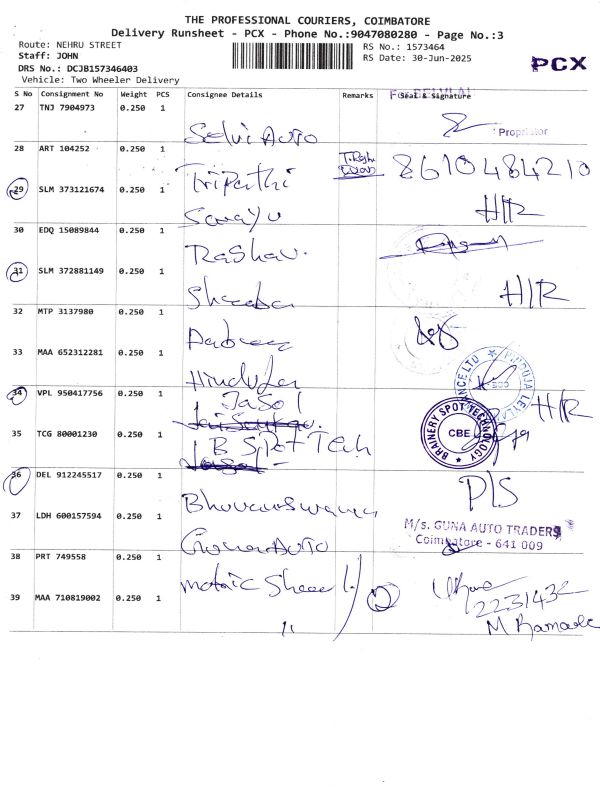 THE PROFESSIONAL COURIERS, COIMBATORE
Delivery Runsheet - PCX - Phone No.:9047080280 - Page No.:3
Route: NEHRU STREET
RS No.: 1573464
Staff: JOHN
RS Date: 30-Jun-2025
PCX
DRS No.: DCJB157346403
Vehicle: Two Wheeler Delivery
S No Consignment No Weight PCS Consignee Details Remarks Seal & Signature
27 TNJ 7904973 0.250 1
Selvi Auto
Proprietor
28 ART 104252 0.250 1
Tripathi
8610484210
29 SLM 373121674 0.250 1
Sarayu
H/R
30 EDQ 15089844 0.250 1
Rashav.
31 SLM 372881149 0.250 1
H/R
32 MTP 3137980 0.250 1
33 MAA 652312281 0.250 1
HINDUJA LEYLAND
34 VPL 950417756 0.250 1
Jasol
H/R
35 TCG 80001230 0.250 1
B Spot Tech
BRAINERY SPOT TECHNOLOGY
CBE
36 DEL 912245517 0.250 1
P/S
37 LDH 600157594 0.250 1
Bhuvaneswari
M/s. GUNA AUTO TRADERS
Coimbatore - 641 009
38 PRT 749558 0.250 1
Guna Auto
39 MAA 710819002 0.250 1